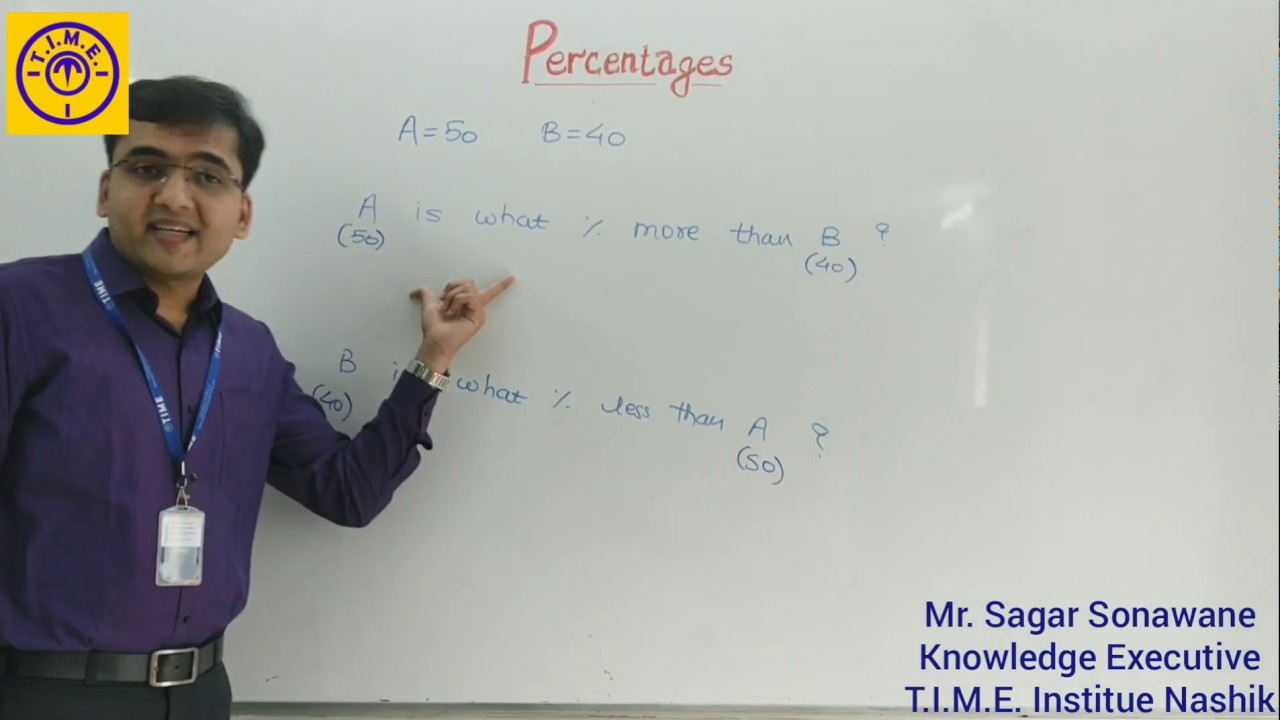 T.I.M.E.
Percentages
A=50 B=40
A is what % more than B ?
(50) (40)
B what % less than A ?
(40) (50)
TIME
TIME
Mr. Sagar Sonawane
Knowledge Executive
T.I.M.E. Institue Nashik